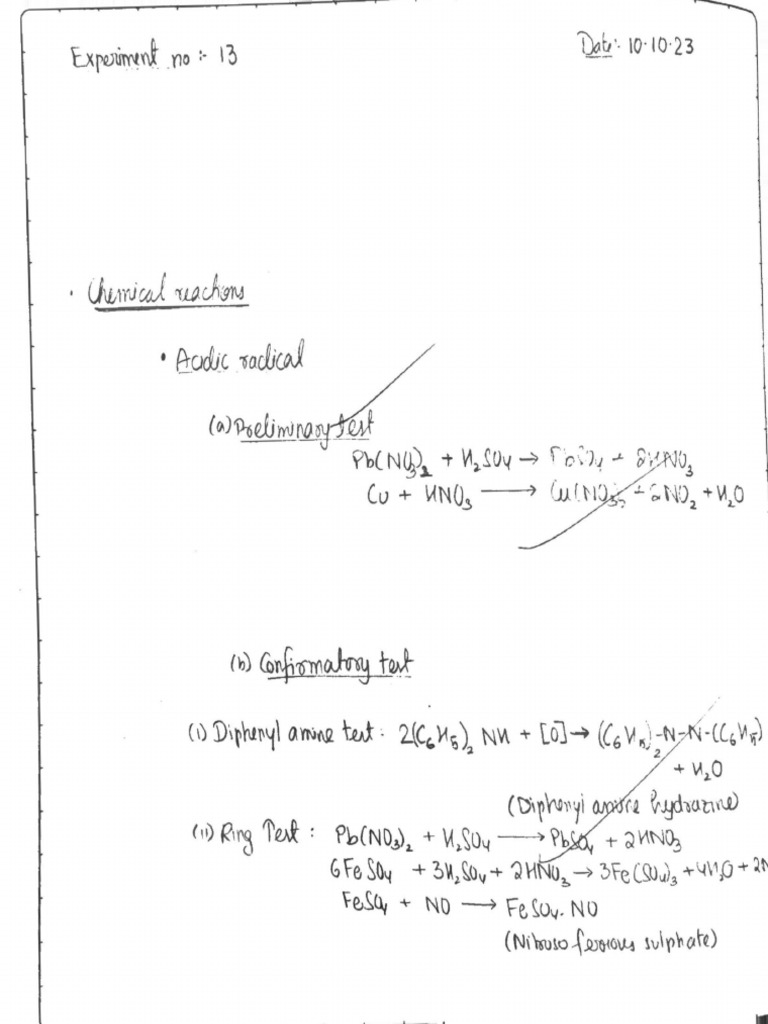 Experiment no :- 13
Date:- 10.10.23
• Chemical reactions
• Acidic radical
(a) Preliminary test
Pb(NO3)2 + H2SO4 → PbSO4 + 2HNO3
Cu + HNO3 → Cu(NO3)2 + 2NO2 + H2O
(b) Confirmatory test
(i) Diphenyl amine test: 2(C6H5)2 NH + [O] → (C6H5)2-N-N-(C6H5)
+ H2O
(Diphenyl amine hydrazine)
(ii) Ring Test : Pb(NO3)2 + H2SO4 → PbSO4 + 2HNO3
6FeSO4 + 3H2SO4 + 2HNO3 → 3Fe(SO4)3 + 4H2O + 2N
FeSO4 + NO → FeSO4.NO
(Nitroso ferrous sulphate)